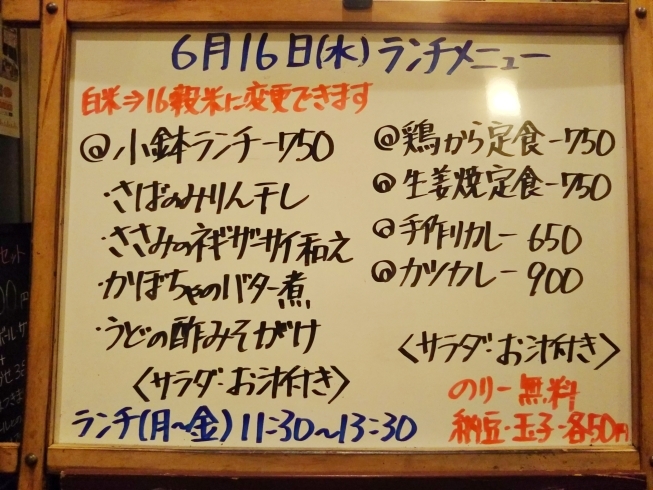 6月16日(水)ランチメニュー
白米⇒16穀米に変更できます
@小鉢ランチー750
・さばのみりん干し
・ささみのネギザーサイ和え
・かぼちゃのバター煮
・うどの酢みそがけ
〈サラダ・お汁付き〉
@鶏から定食ー750
@生姜焼定食ー750
@手作りカレー650
@カツカレー900
〈サラダ・お汁付き〉
のりー無料
納豆・玉子・各50円
ランチ(月~金)11:30~13:30
セット